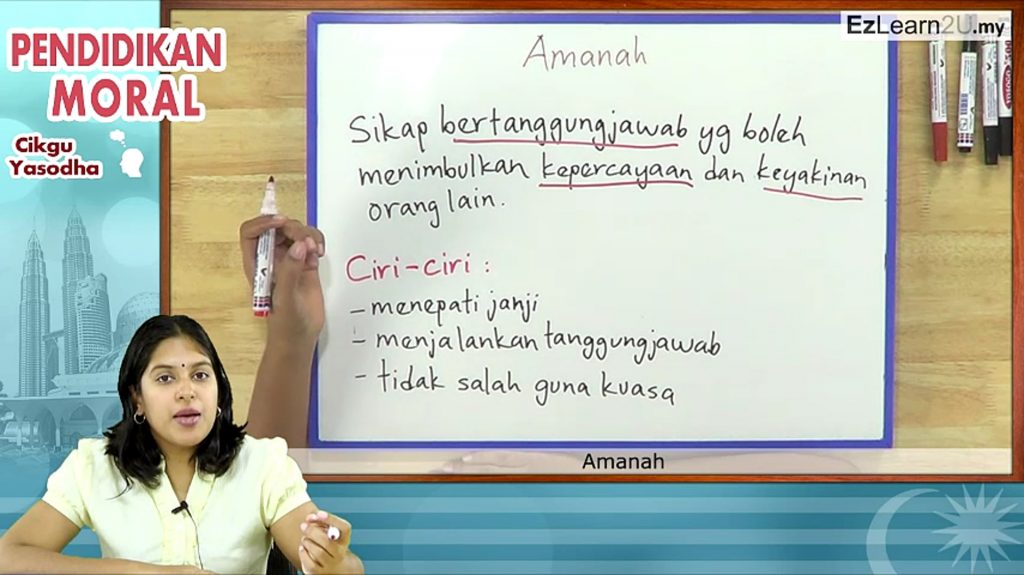 PENDIDIKAN
MORAL
Cikgu
Yasodha
EzLearn2U.my
Amanah
Sikap bertanggungjawab yg boleh
menimbulkan kepercayaan dan keyakinan
orang lain.
Ciri-ciri :
- menepati janji
- menjalankan tanggungjawab
- tidak salah guna kuasa
Amanah